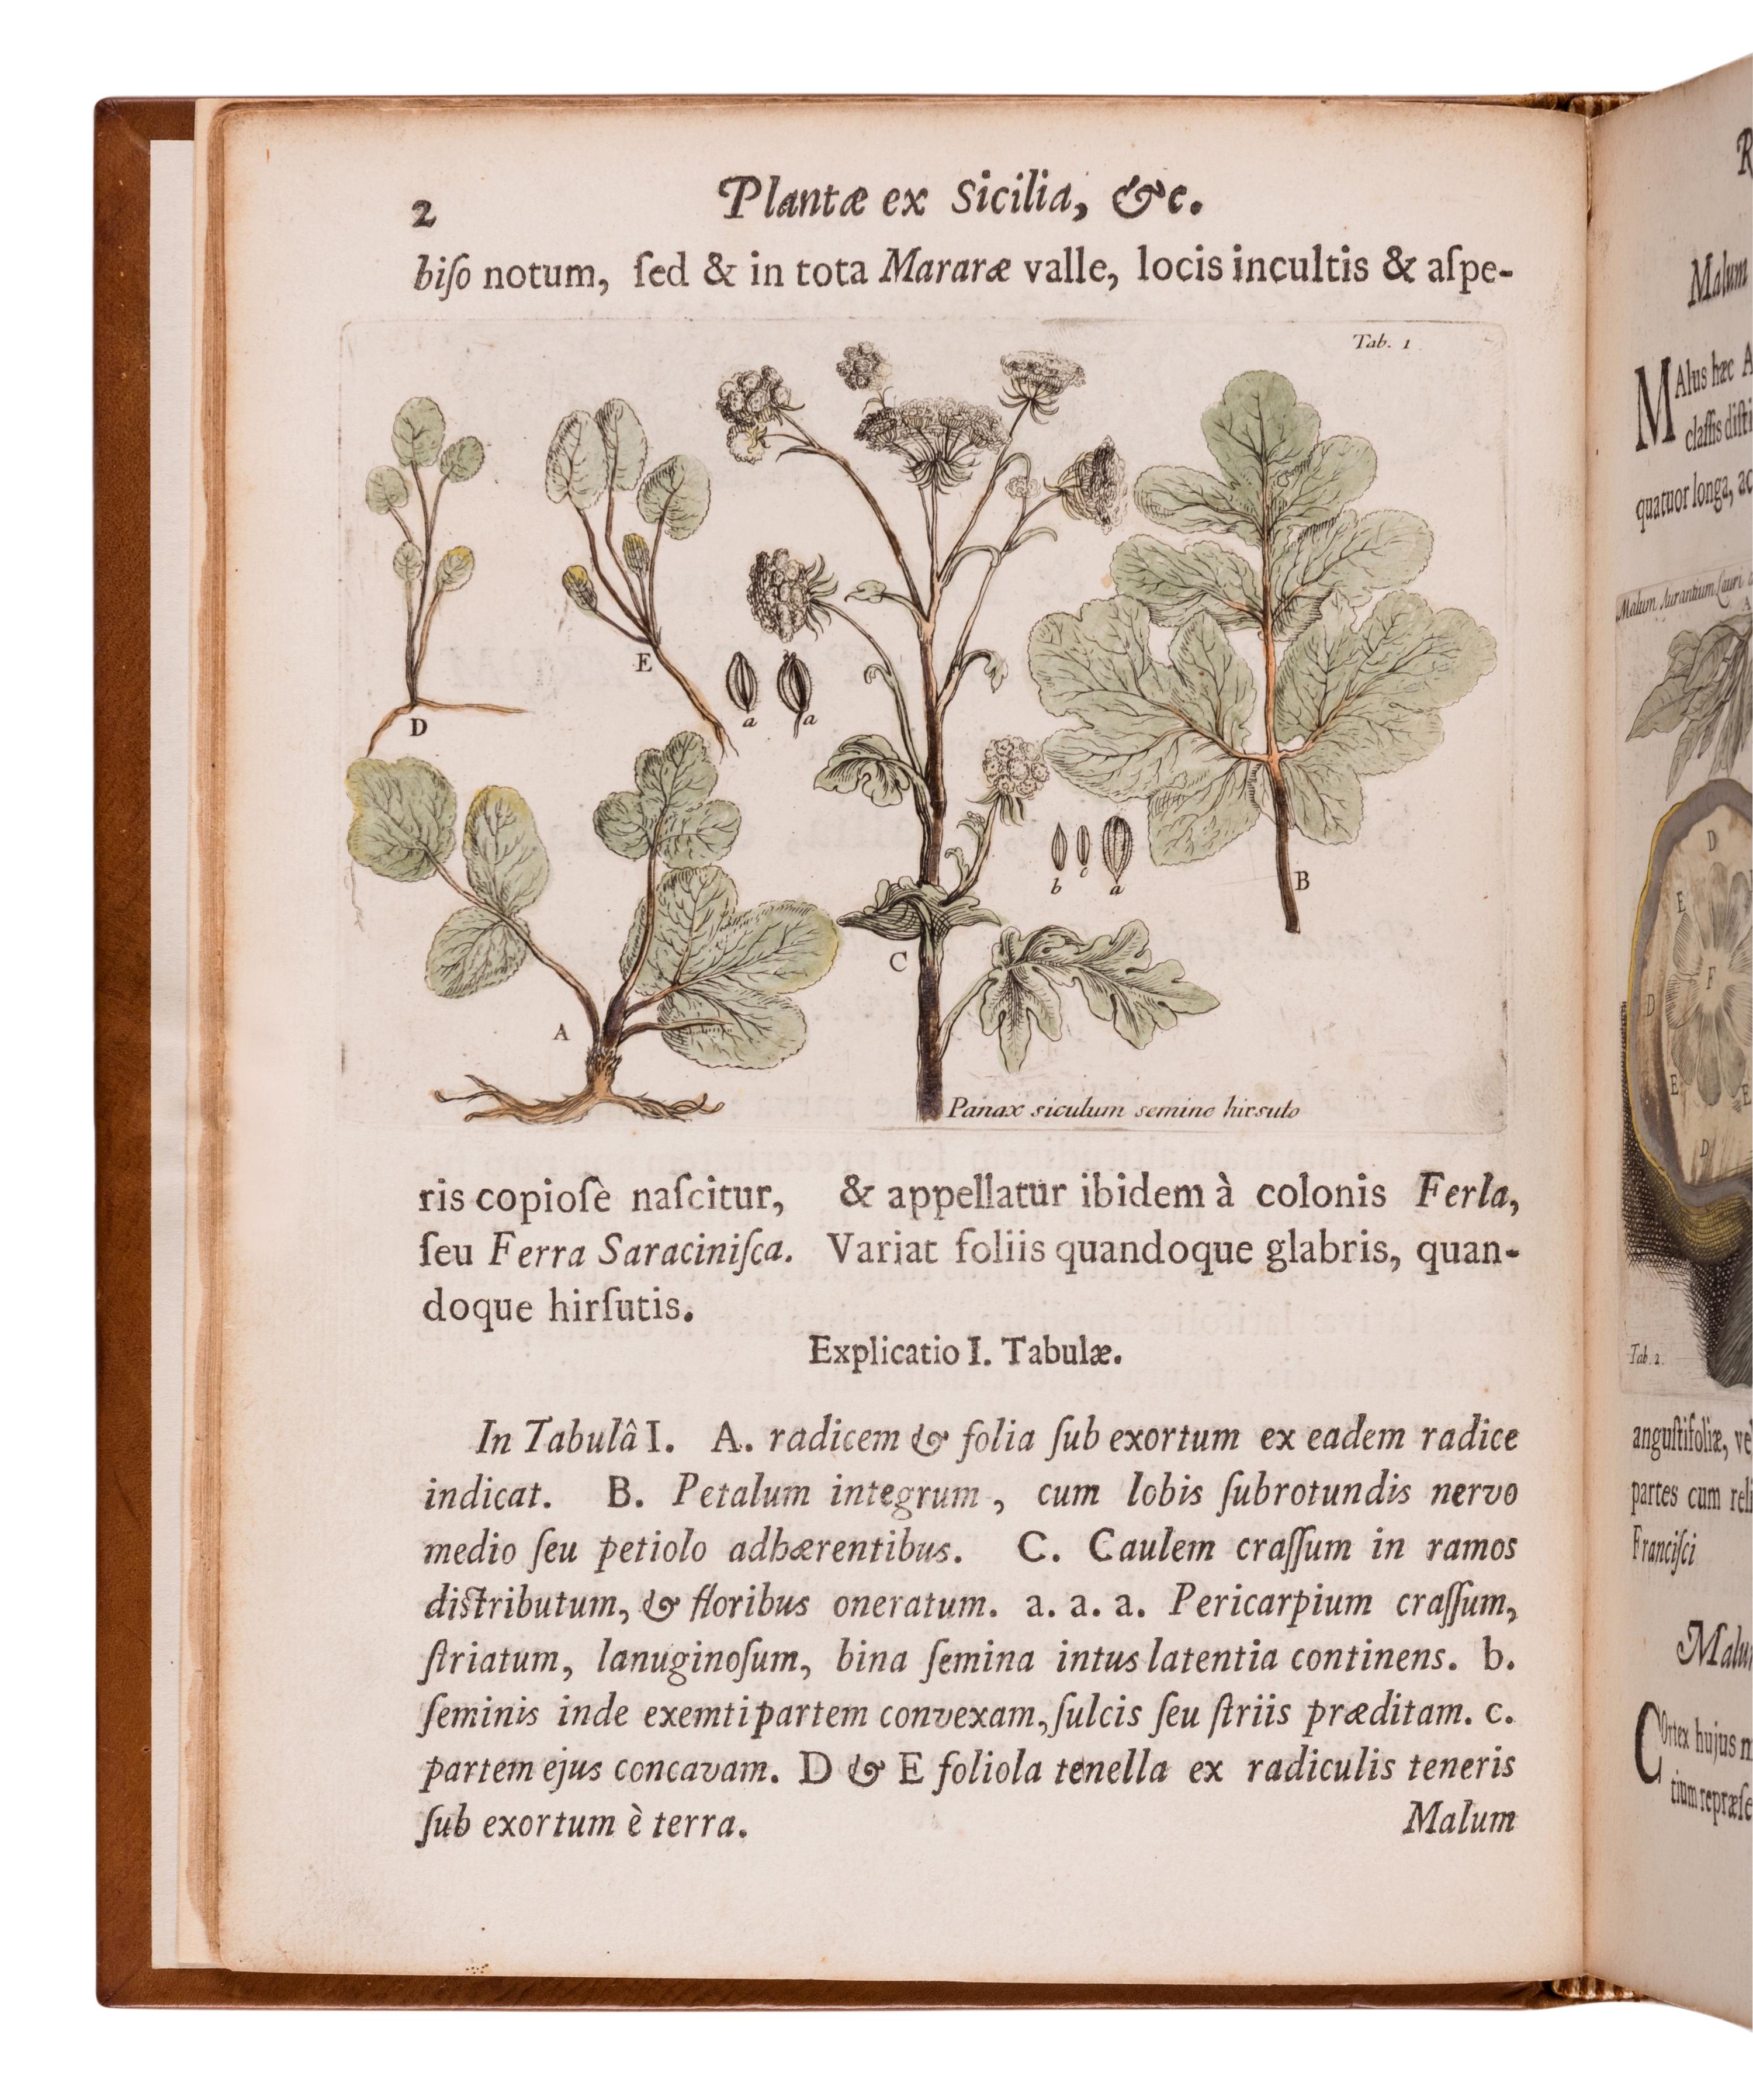 2
Plantæ ex Sicilia, &c.
biſo notum, ſed & in tota Mararæ valle, locis incultis & aſpe-
Tab. 1
E
D
a
a
b
c
a
B
C
A
Panax siculum semine hirsuto
ris copioſè naſcitur, & appellatur ibidem à colonis Ferla,
ſeu Ferra Saraciniſca. Variat foliis quandoque glabris, quan-
doque hirſutis.
Explicatio I. Tabulæ.
In Tabulâ I. A. radicem & folia ſub exortum ex eadem radice
indicat. B. Petalum integrum, cum lobis ſubrotundis nervo
medio ſeu petiolo adhærentibus. C. Caulem craſſum in ramos
distributum, & floribus oneratum. a. a. a. Pericarpium craſſum,
ſtriatum, lanuginoſum, bina ſemina intus latentia continens. b.
ſeminis inde exemti partem convexam, ſulcis ſeu ſtriis præditam. c.
partem ejus concavam. D & E foliola tenella ex radiculis teneris
ſub exortum è terra.
Malum
R
Malum
MAlus hæc A
claſſis diſti
quatuor longa, ac
Malum Aurantium Lauri
D
E
F
D
E
E
D
Tab. 2.
anguſtifoliæ, ve
partes cum reli
Franciſci
Malu
COrtex hujus m
tium repræſe